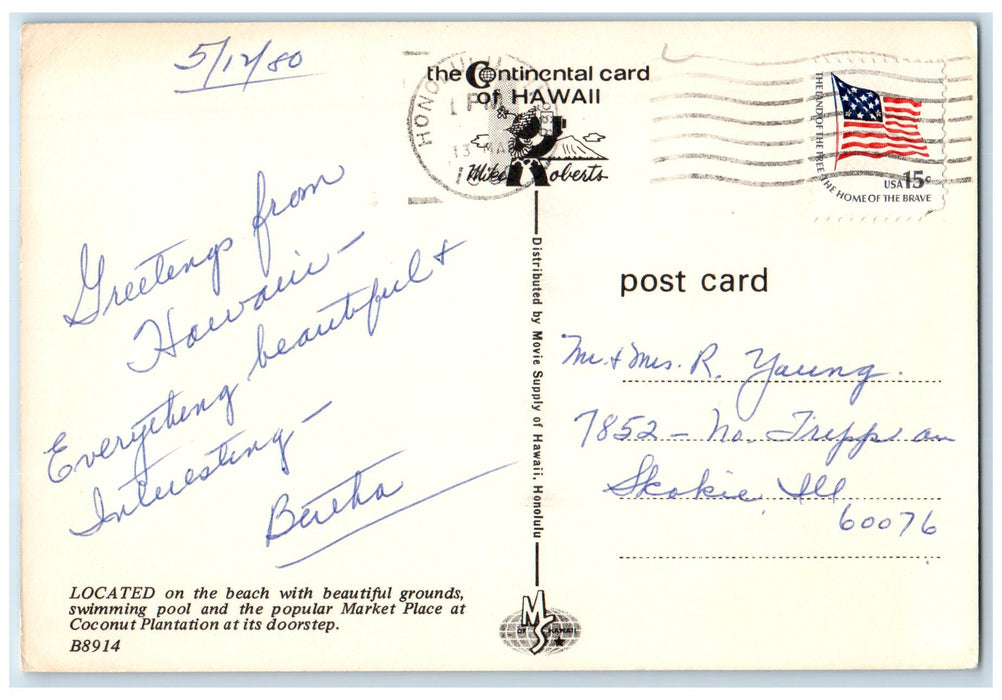 5/12/80
the Continental card
of HAWAII
Mike Roberts
HONOLULU
13 MAY
THE LAND OF THE FREE THE HOME OF THE BRAVE
USA 15c
Greetings from
Hawaii –
Everything beautiful +
Interesting –
Bertha
post card
Mr. + Mrs. R. Young.
7852 – No. Tripp
Skokie, Ill
60076
Distributed by Movie Supply of Hawaii, Honolulu
LOCATED on the beach with beautiful grounds,
swimming pool and the popular Market Place at
Coconut Plantation at its doorstep.
B8914
MS
OF HAWAII